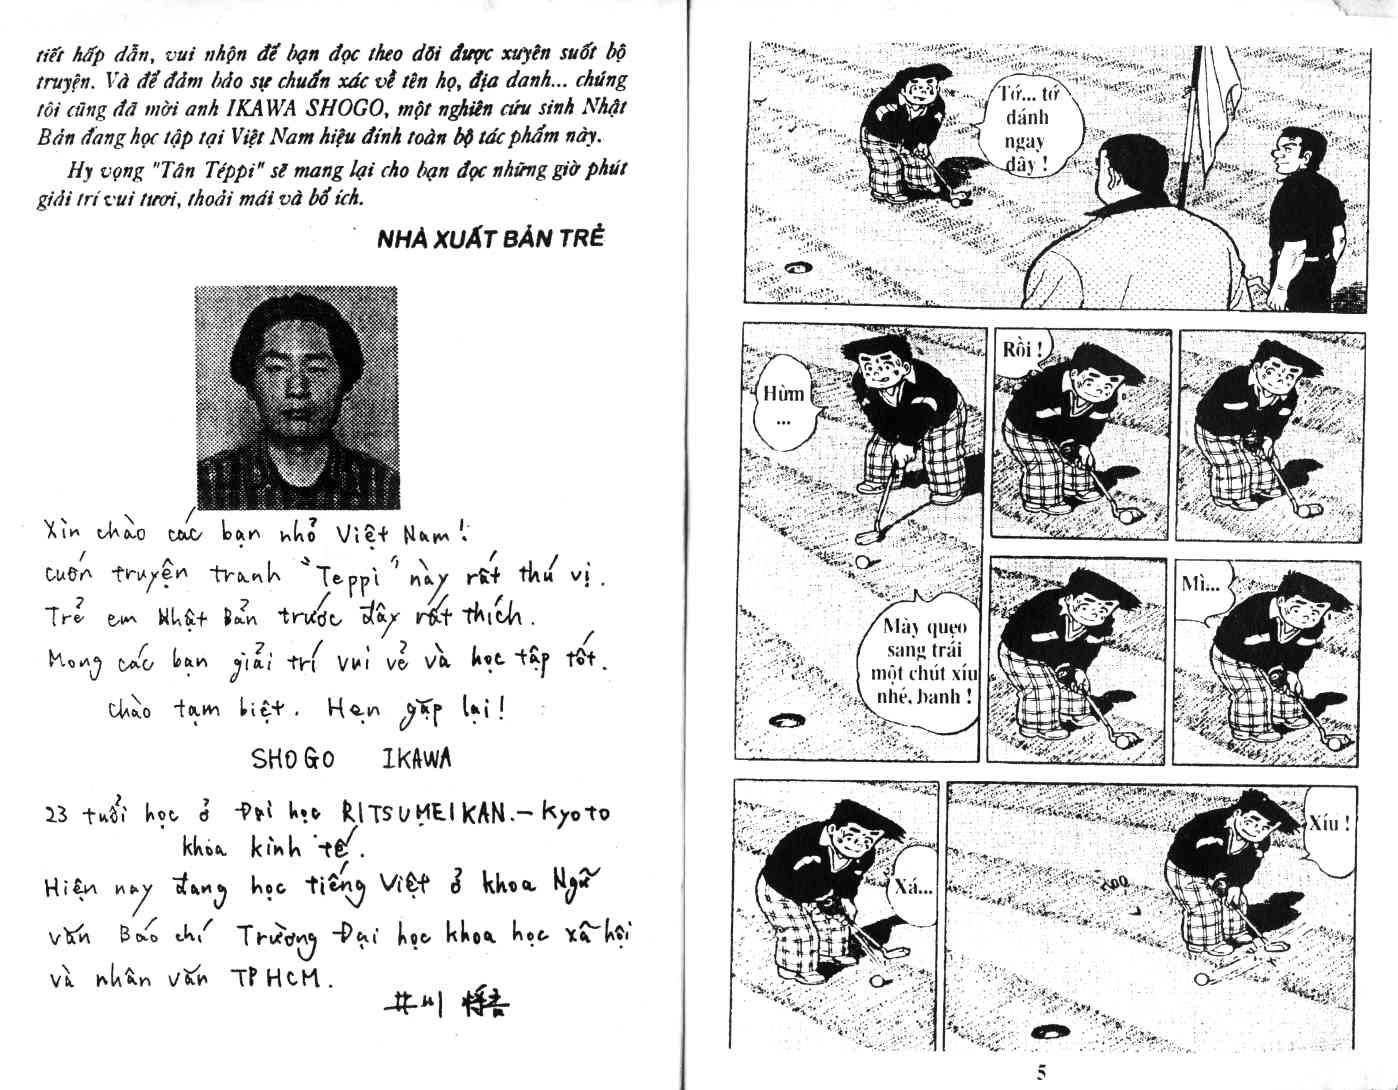 tiết hấp dẫn, vui nhộn để bạn đọc theo dõi được xuyên suốt bộ
truyện. Và để đảm bảo sự chuẩn xác về tên họ, địa danh... chúng
tôi cũng đã mời anh IKAWA SHOGO, một nghiên cứu sinh Nhật
Bản đang học tập tại Việt Nam hiệu đính toàn bộ tác phẩm này.
Hy vọng "Tân Téppi" sẽ mang lại cho bạn đọc những giờ phút
giải trí vui tươi, thoải mái và bổ ích.
NHÀ XUẤT BẢN TRẺ
Xin chào các bạn nhỏ Việt Nam!
cuốn truyện tranh "Teppi" này rất thú vị.
Trẻ em Nhật Bản trước đây rất thích.
Mong các bạn giải trí vui vẻ và học tập tốt.
chào tạm biệt. Hẹn gặp lại!
SHOGO IKAWA
23 tuổi học ở Đại học RITSUMEIKAN.- Kyoto
khoa kinh tế.
Hiện nay đang học tiếng Việt ở khoa Ngữ
văn Báo chí Trường Đại học khoa học xã hội
và nhân văn TPHCM.
井川 将吾
Tớ... tớ
đánh
ngay
đây !
Hừm
...
Rồi !
Mày quẹo
sang trái
một chút xíu
nhé, banh !
Mì...
Xá...
Xíu !
5